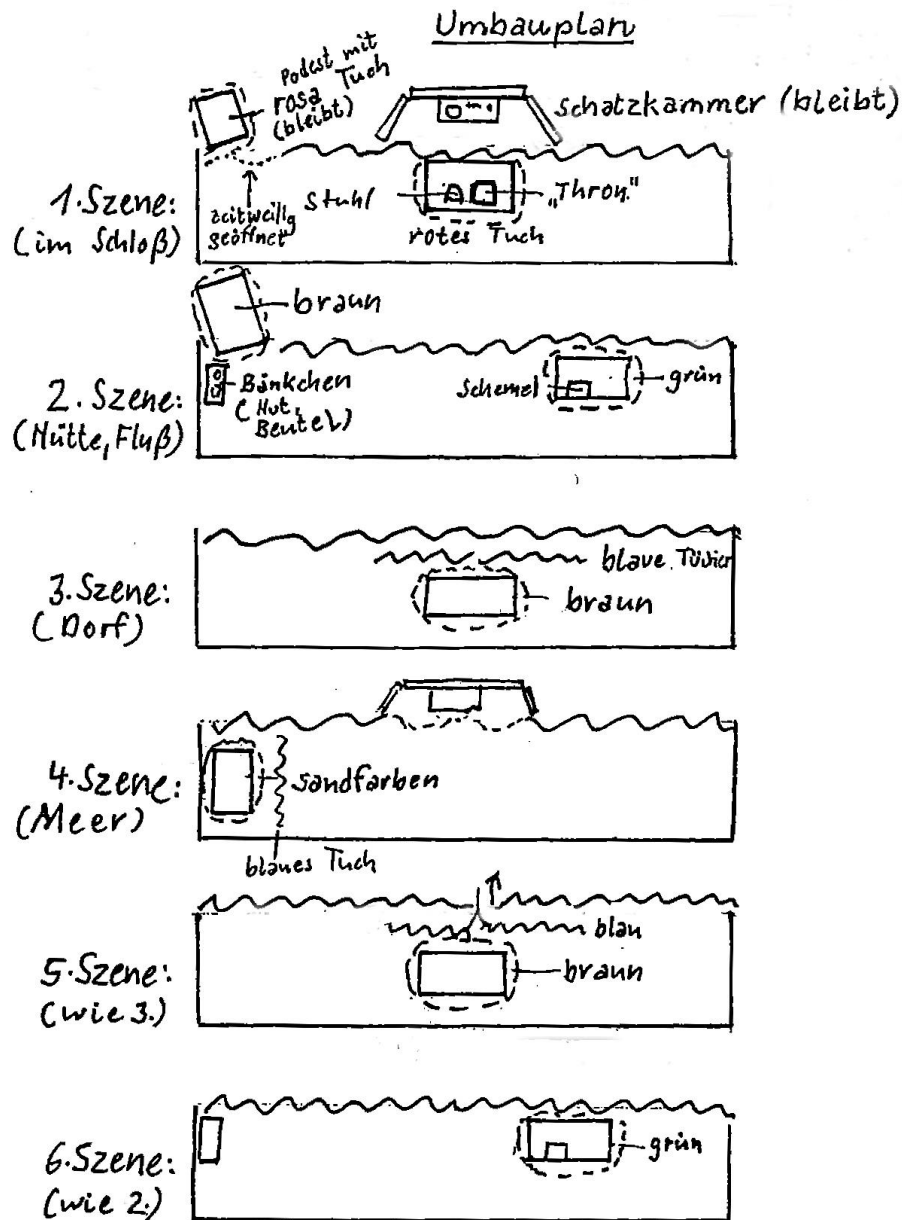 Umbauplan
Podest mit
rosa Tuch
(bleibt)
Schatzkammer (bleibt)
1. Szene:
(im Schloß)
zeitweilig
geöffnet
Stuhl
„Thron."
rotes Tuch
braun
2. Szene:
(Hütte, Fluß)
Bänkchen
(Hut,
Beutel)
Schemel
grün
3. Szene:
(Dorf)
blaue Tücher
braun
4. Szene:
(Meer)
sandfarben
blaues Tuch
5. Szene:
(wie 3.)
blau
braun
6. Szene:
(wie 2.)
grün